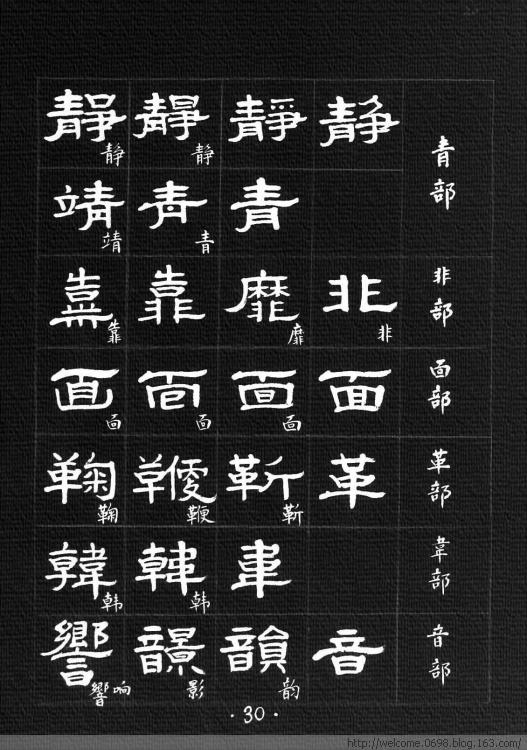 青部 静 靜 靜 静 靜 静
青 青 青 靖 靖
非部 非 非 靡 靡 靠 靠 靠
面部 面 面 面 面 面 面 面
革部 革 靳 靳 鞭 鞭 鞠 鞠
韋部 韋 韓 韩 韓 韩
音部 音 韻 韵 影 響 響 响
·30·
http://welcome.0698.blog.163.com/